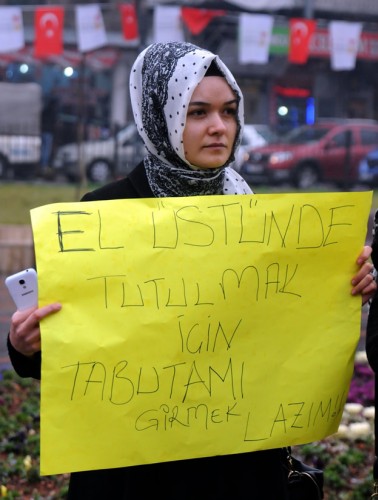 EL ÜSTÜNDE
TUTULMAK
İÇİN
TABUTAMI
GİRMEK LAZIM!